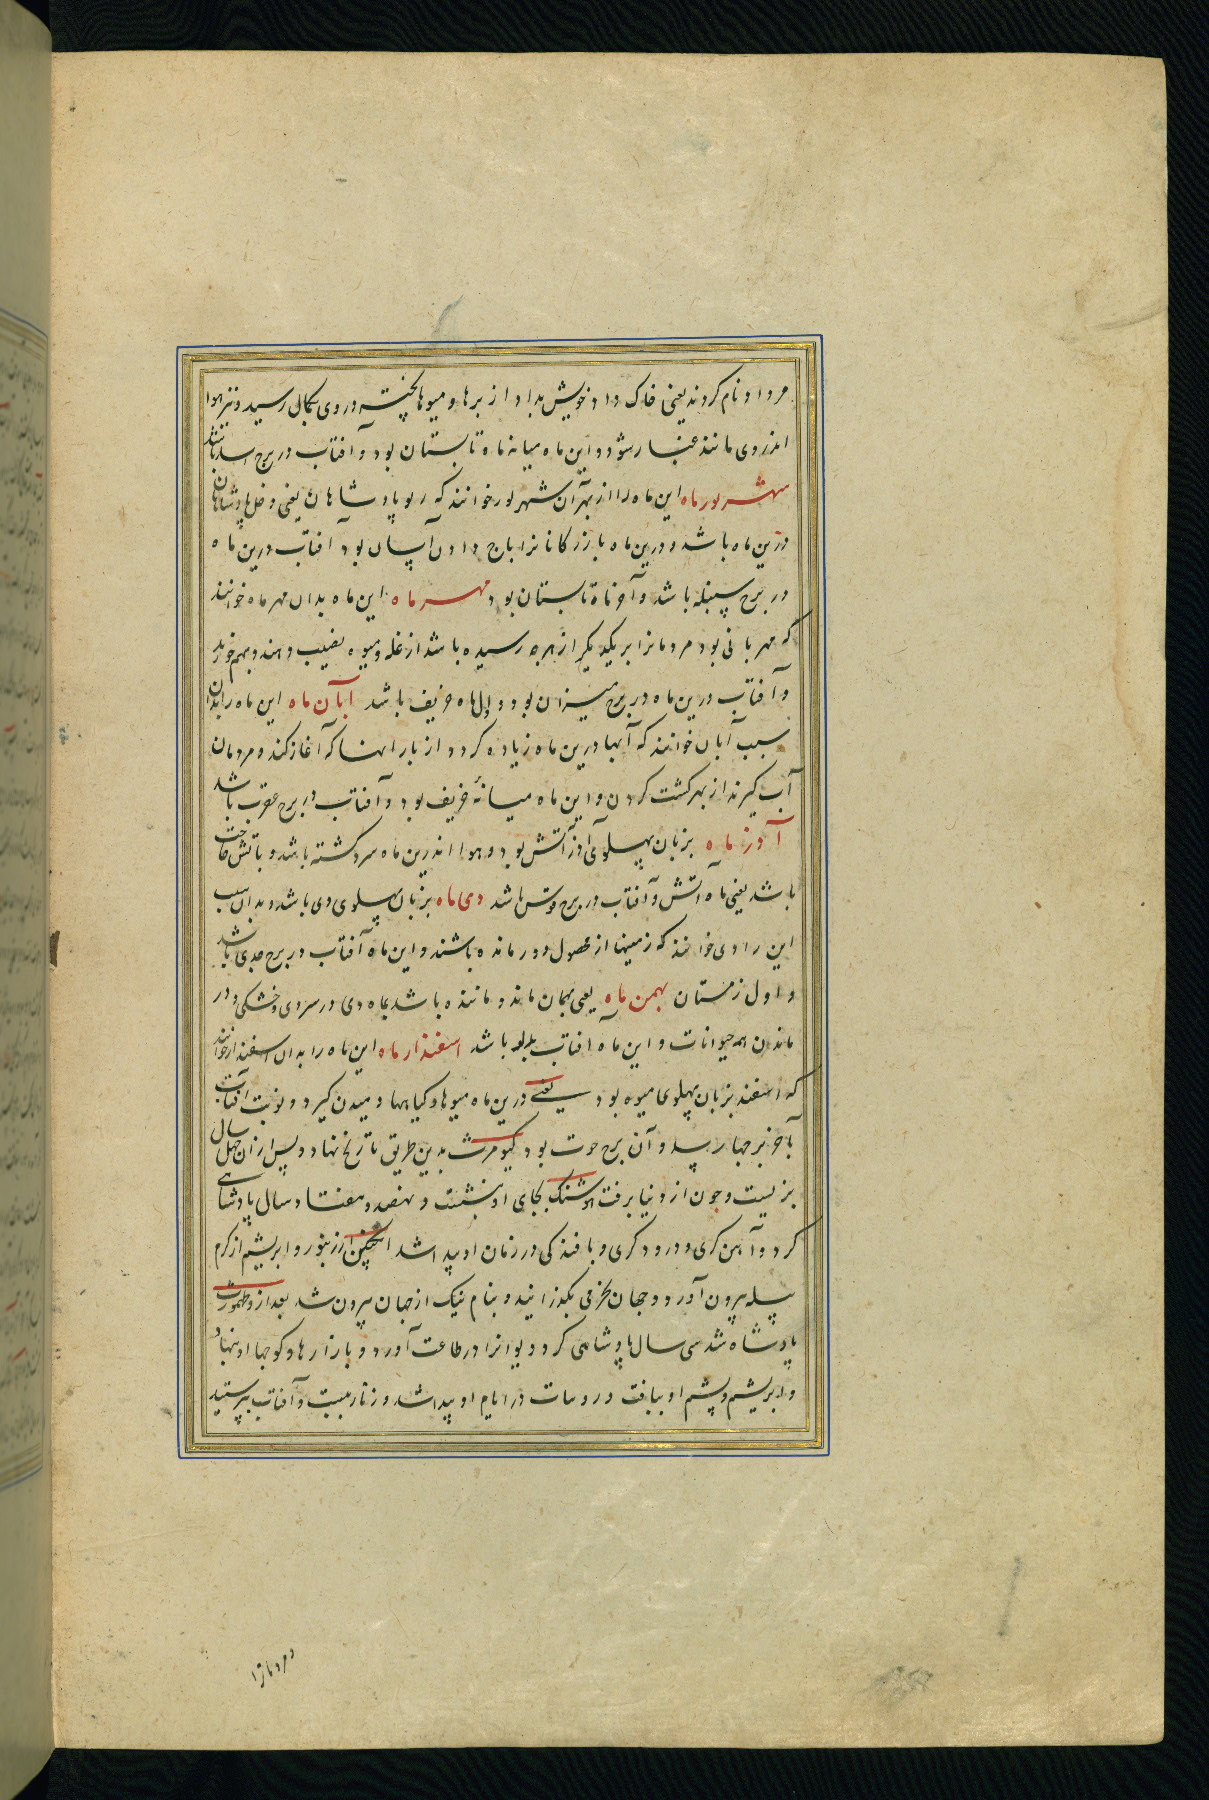 مرداد نام کردند یعنی خاک داد خویش بداد از برها و میوها پخته در وی بکمال رسید و نیز هوا
اندر وی مانند غبار شود و این ماه میانه ماه تابستان بود و آفتاب در برج اسد باشد
شهریور ماه این ماه را از بهر آن شهریور خوانند که ریو پادشاهان یعنی دخل پادشاهان
درین ماه باشد و درین ماه بارزرکانانرا باج دادن آسان بود آفتاب درین ماه
در برج سنبله باشد و آخر ماه تابستان بود مهر ماه این ماه بدان مهر ماه خوانند
که مهربانی بود مردمانرا بر یکدیکر از هرچه رسیده باشد از غله و میوه نصیب دهند و بهم خورند
و آفتاب درین ماه در برج میزان بود و اول ماه خریف باشد آبان ماه این ماه را بدان
سبب آبان خوانند که آبها درین ماه زیاده کردد از بارانها که آغاز کند و مردمان
آب کیرند از بهر کشت کردن و این ماه میانهٔ خریف بود و آفتاب در برج عقرب باشد
آذر ماه بزبان پهلوی آذر آتش بود و هوا اندرین ماه سرد کشته باشد و باتش حاجت
باشد یعنی ماه آتش و آفتاب در برج قوس باشد دی ماه بزبان پهلوی دی باشد و بدان سبب
این را دی خوانند که زمینها از محصول دور مانده باشند و این ماه آفتاب در برج جدی باشد
و اول زمستان بهمن ماه یعنی بهمان ماند و ماننده باشد بماه دی در سردی و خشکی و در
ماندن همه حیوانات و این ماه آفتاب بدلو باشد اسفندار ماه این ماه را بدان اسفندار خوانند
که اسفند بزبان پهلوی میوه بود یعنی درین ماه میوها و کیاهها دمیدن کیرد و نوبت آفتاب
بآخر برجها رسد و آن برج حوت بود کیومرث بدین طریق تاریخ نهاد و پس از آن چهل سال
بزیست و چون از دنیا برفت هوشنک بجای او بنشست و نهصد و هفتاد سال پادشاهی
کرد و آهن کری و درودکری و بافندکی در زمان او پیدا شد انکبین از زنبور و ابریشم از کرم
پیله بیرون آورد و جهان بخرمی بکذرانید و بنام نیک از جهان بیرون شد بعد ازو طهمورث
پادشاه شد سی سال پادشاهی کرد و دیوانرا در طاعت آورد و بازارها و کوچها او بنهاد
و ابریشم و پشم او ببافت و درایام او پیدا شد و زنار ببست و آفتاب پرستید
مردمانرا